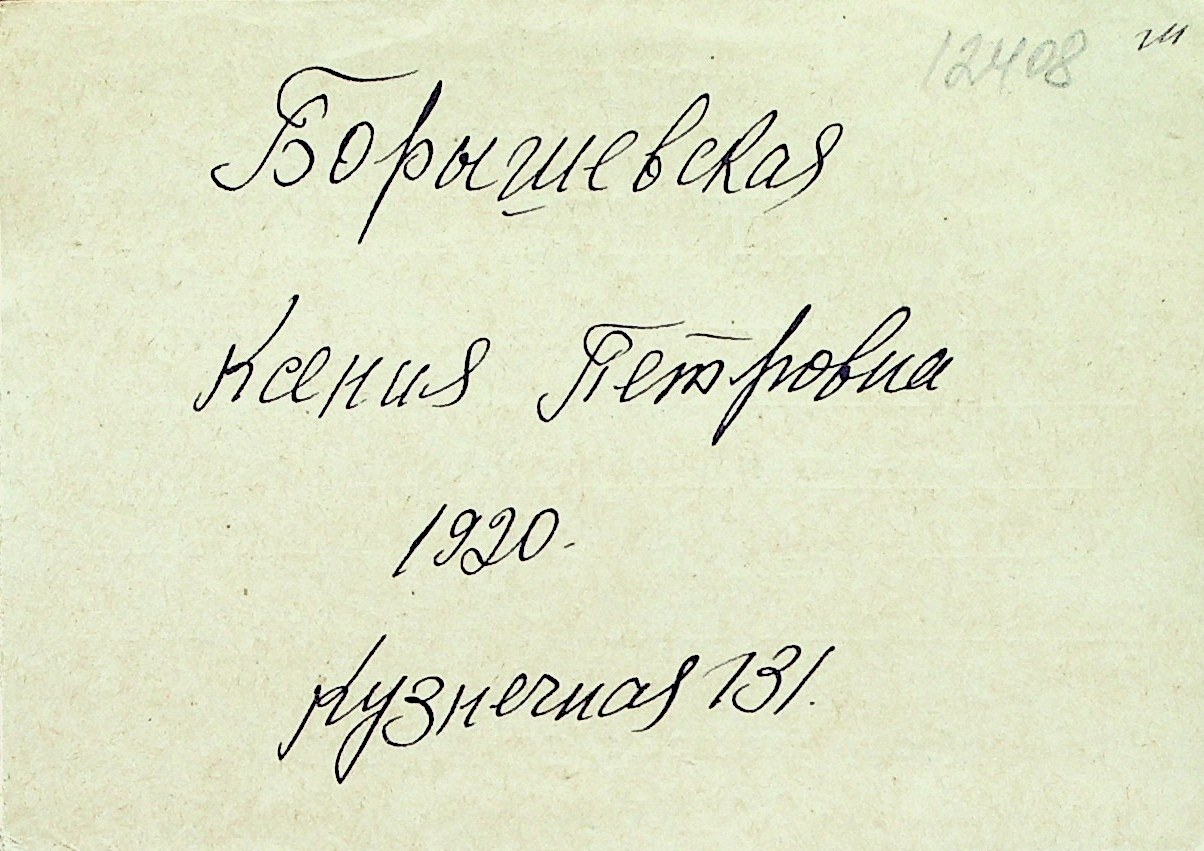 12408
Борышевская
Ксения Петровна
1920.
Кузнечная 131.